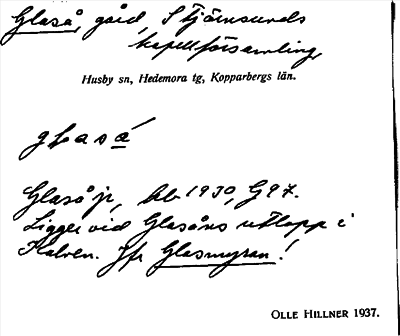 Glaså, gård, Stjärnsunds
kapellförsamling,
Husby sn, Hedemora tg, Kopparbergs län.
glasá
Glasåp, hb 1930, G97.
Ligger vid Glasåns utlopp i
Kalven. Jfr Glasmyran!
OLLE HILLNER 1937.